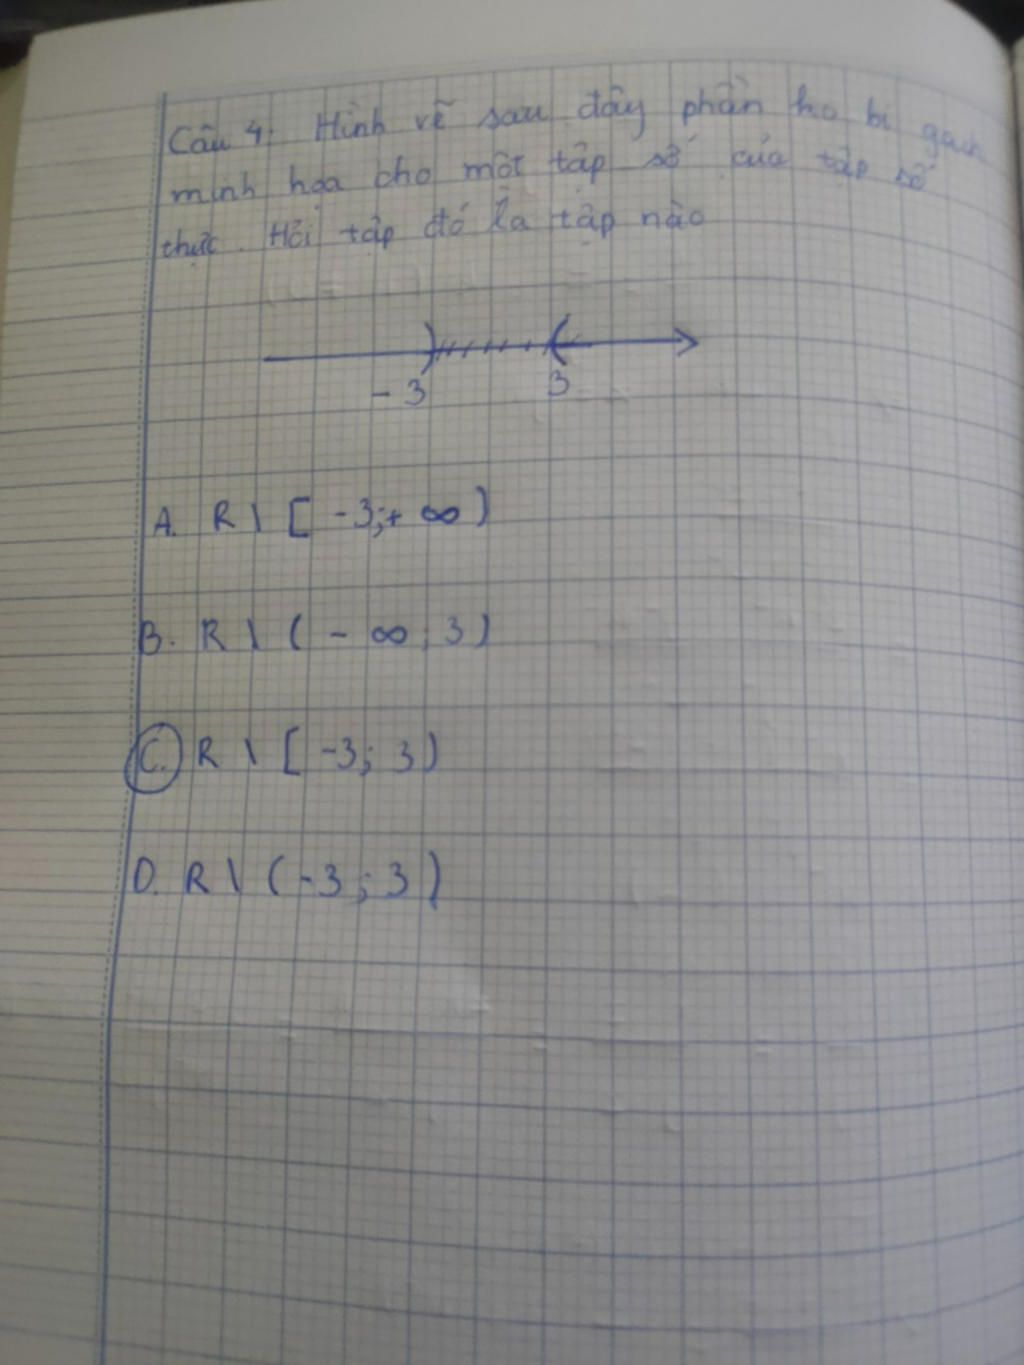 Câu 4: Hình vẽ sau đây phần ko bị gạch
minh họa cho một tập số của tập số
thực. Hỏi tập đó là tập nào
- 3 3
A. R \ [ -3;+ ∞ )
B. R \ ( - ∞; 3 )
C. R \ [ -3; 3 )
D. R \ ( -3 ; 3 )